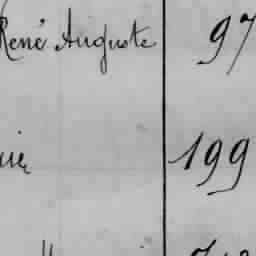 René Auguste 97
199